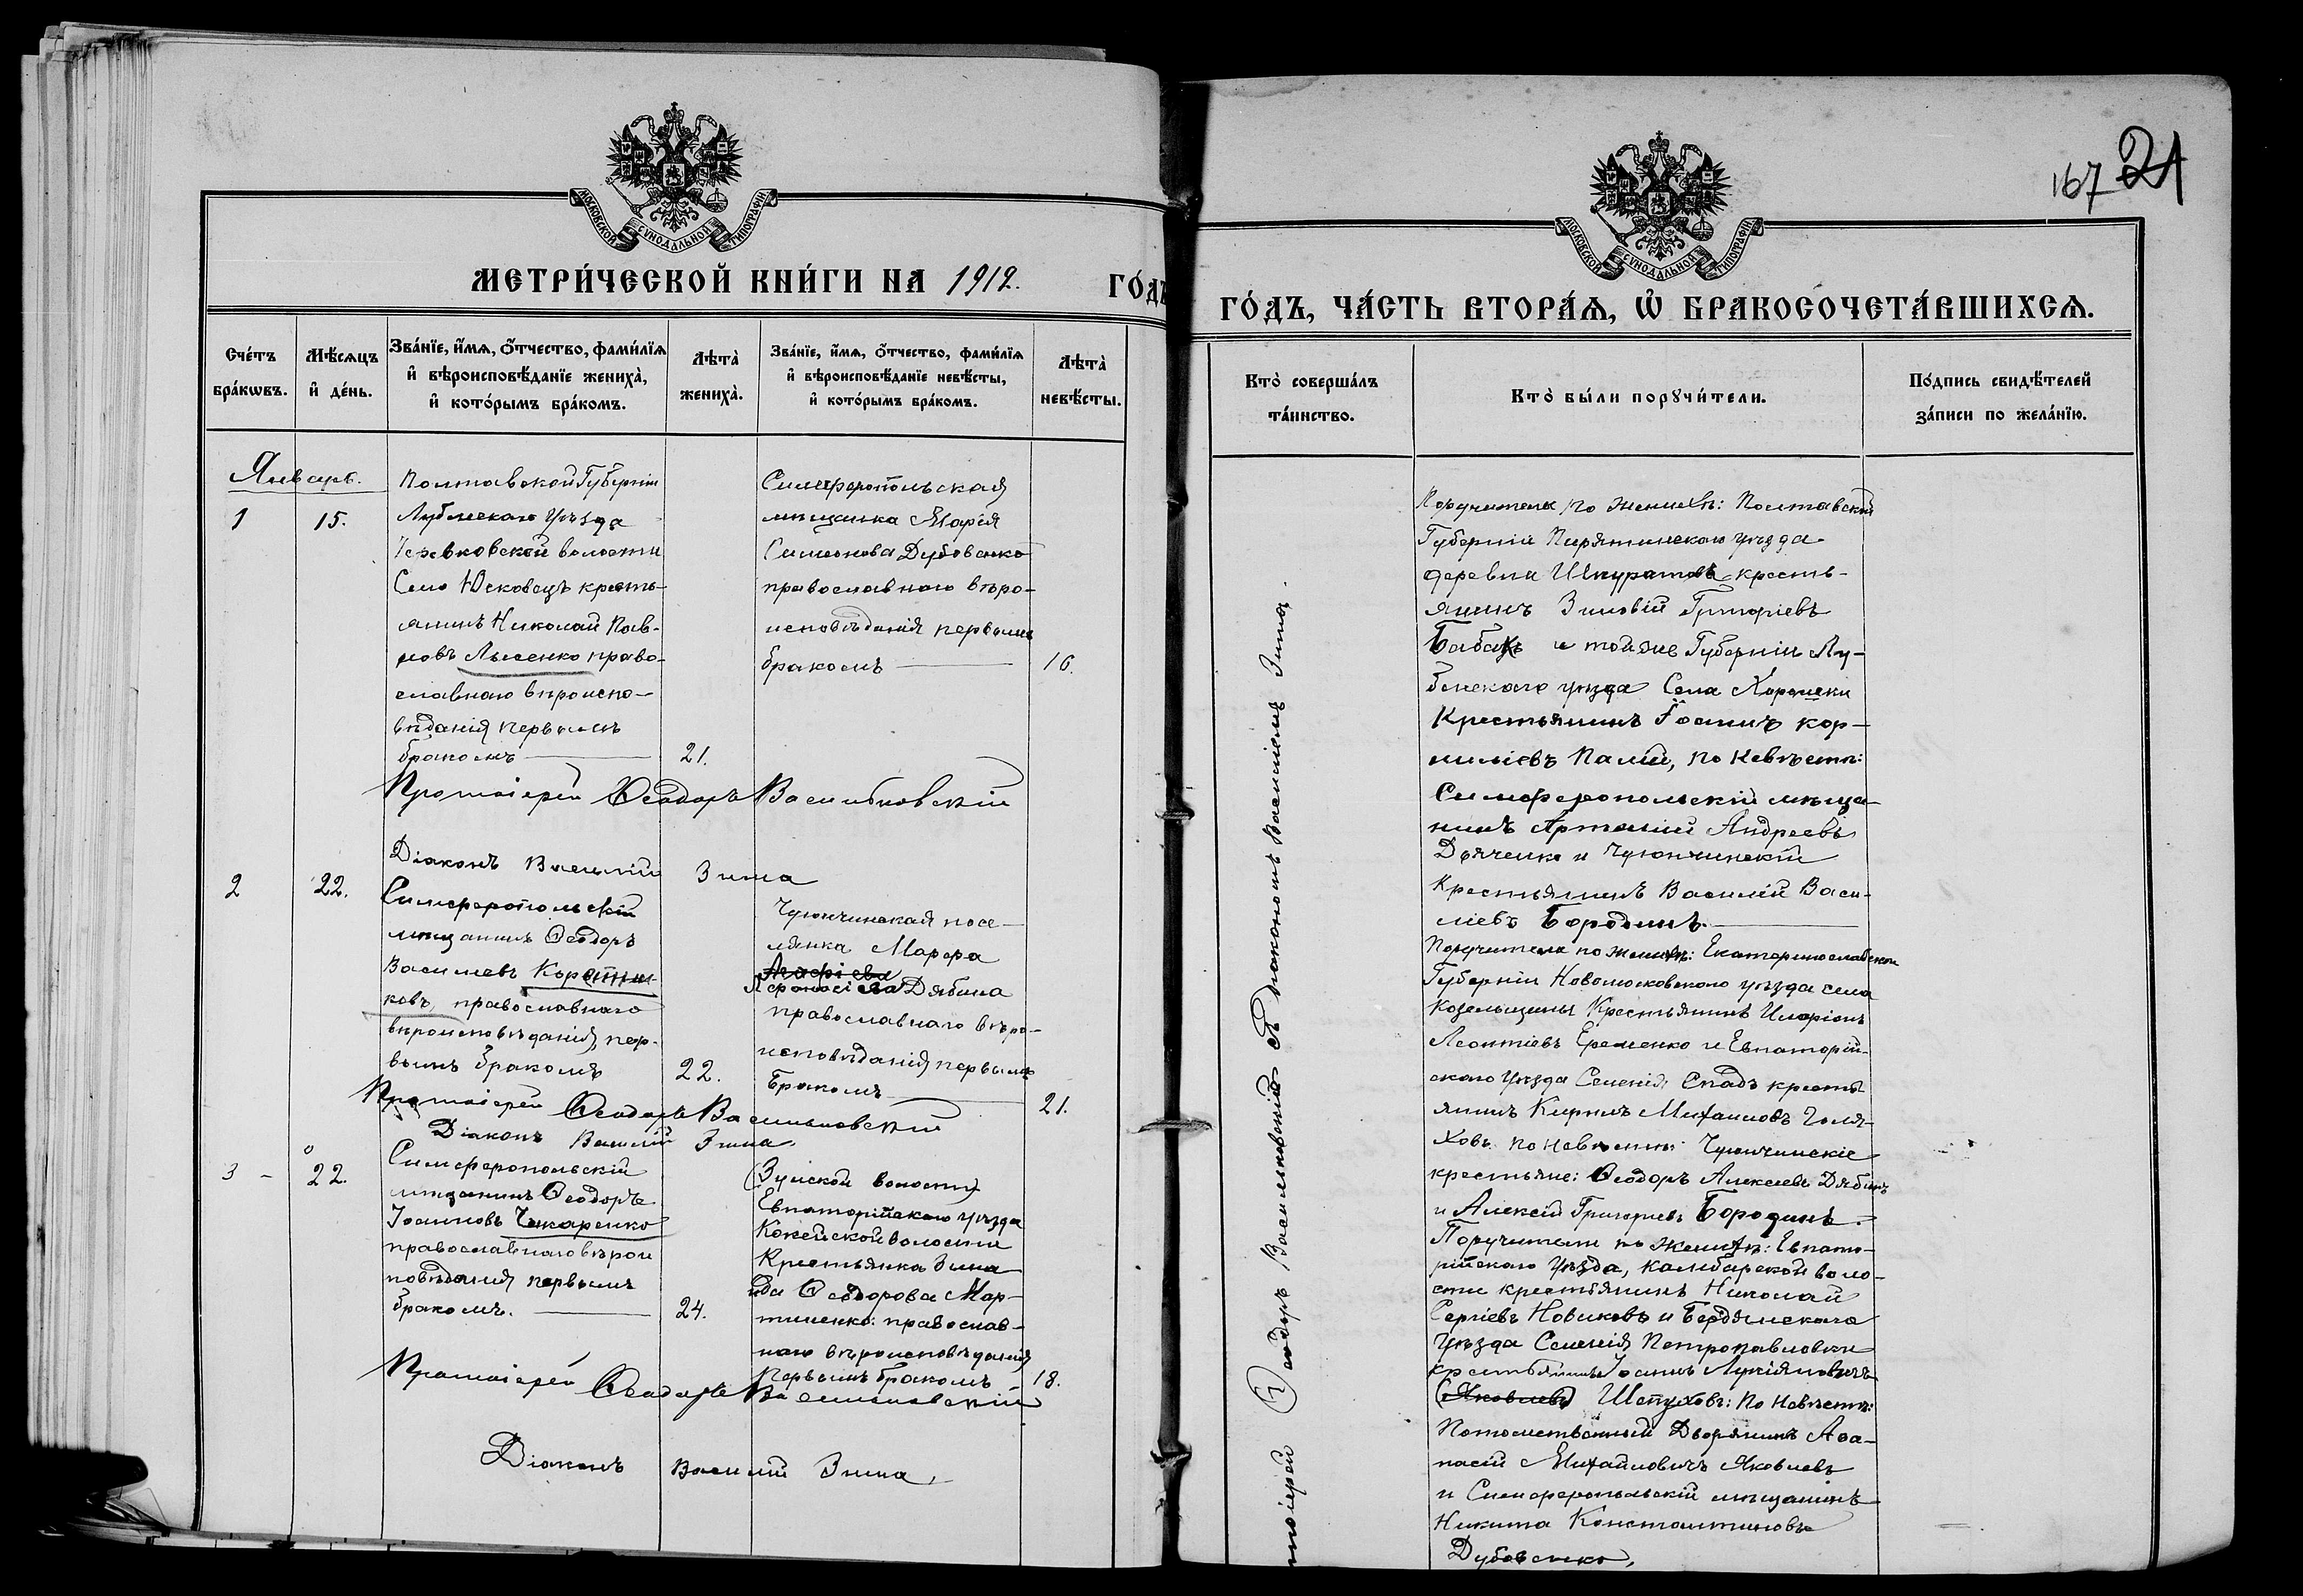 МОСКОВСКОЙ СѴНОДАЛЬНОЙ ТИПОГРАФІИ
МЕТРИ́ЧЕСКОЙ КНИ́ГИ НА 1912. ГО́ДЪ
Сче́тъ бра́кωвъ.
Мѣ́сяцъ и҆ де́нь.
Зва́нїе, и҆́мѧ, ѻ҆́тчество, фами́лїѧ
и҆ вѣроисповѣ́данїе жениха̀,
и҆ кото́рымъ бра́комъ.
Лѣта̀ жениха̀.
Зва́нїе, и҆́мѧ, ѻ҆́тчество, фами́лїѧ
и҆ вѣроисповѣ́данїе невѣ́сты,
и҆ кото́рымъ бра́комъ.
Лѣта̀ невѣ́сты.
Январь.
1
15.
Полтавской Губерніи
Лубенскаго Уѣзда
волости
Село Юсковецъ кресть-
янинъ Николай Пав-
ловъ Лысенко право-
славнаго вѣроиспо-
вѣданія первымъ
бракомъ
21.
Симферопольская
мѣщанка Марія
Симеонова Дубовенко
православнаго вѣро-
исповѣданія первымъ
бракомъ
16.
Протоіерей Ѳеодоръ Васильковскій
Діаконъ Василій Зима
2
22.
Симферопольскій
мѣщанинъ Ѳеодоръ
Васильевъ
ковъ, православнаго
вѣроисповѣданія, пер-
вымъ бракомъ
22.
Чуюнчинская посе-
лянка Марфа
Дябина
православнаго вѣро-
исповѣданія первымъ
бракомъ
21.
Протоіерей Ѳеодоръ Васильковскій
Діаконъ Василій Зима
3 -
22.
Симферопольскій
мѣщанинъ Ѳеодоръ
Іоанновъ Чекаренко
православнаго вѣрои
повѣданія первымъ
бракомъ.
24.
(Зуйской волости)
Евпаторійскаго уѣзда
волости
Крестьянка Зина
ида Ѳеодорова Мар-
тиненко: православ-
наго вѣроисповѣданія
Первымъ бракомъ
18.
Протоіерей Ѳеодоръ Васильковскій
Діаконъ Василій Зима,
167 21
МОСКОВСКОЙ СѴНОДАЛЬНОЙ ТИПОГРАФІИ
ГО́ДЪ, ЧА́СТЬ ВТОРА́Ѧ, Ѽ БРАКОСОЧЕТА́ВШИХСѦ.
Кто̀ соверша́лъ
та́инство.
Кто̀ бы́ли порꙋчи́тели.
По́дпись свидѣ́телей
за́писи по жела́нїю.
Протоіерей Ѳеодоръ Васильковскій съ діакономъ Василіемъ Зима.
Поручители по женихѣ: Полтавской
Губерніи Пирятинскаго уѣзда
деревни Шкуратовъ кресть-
янинъ Зиновій Григоріевъ
Бабакъ и той же Губерніи Лу-
бенскаго уѣзда Села
Крестьянинъ Іоаннъ Кор-
ниліевъ Палій, по невѣстѣ:
Симферопольскій мѣща-
нинъ Артемій Андреевъ
Дьяченко и Чуюнчинскій
Крестьянинъ Василій Васи-
ліевъ Бородинъ.
Поручители по женихѣ: Екатеринославской
Губерніи Новомосковскаго уѣзда села
Козельщины Крестьянинъ Иларіонъ
Леонтіевъ Еременко и Евпаторій-
скаго уѣзда Селенія кресть
янинъ Кирилъ Михаиловъ Голя-
ховъ. по невѣстѣ: Чуюнчинскіе
крестьяне: Ѳеодоръ Алексеевъ Дябинъ
и Алексій Григорьевъ Бородинъ.
Поручители по женихѣ: Евпато-
рійскаго уѣзда, Камбарской воло-
сти крестьянинъ Николай
Сергіевъ Новиковъ и Бердянскаго
Уѣзда Селенія Петропавловки
крестьянинъ Іоаннъ Лукіяновичъ
(Яковлевъ) По невѣстѣ:
Потомственный Дворянинъ Аѳа-
насій Михайловичъ Яковлевъ
и Симферопольскій мѣщанинъ
Никита Константиновъ
Дубовенко,